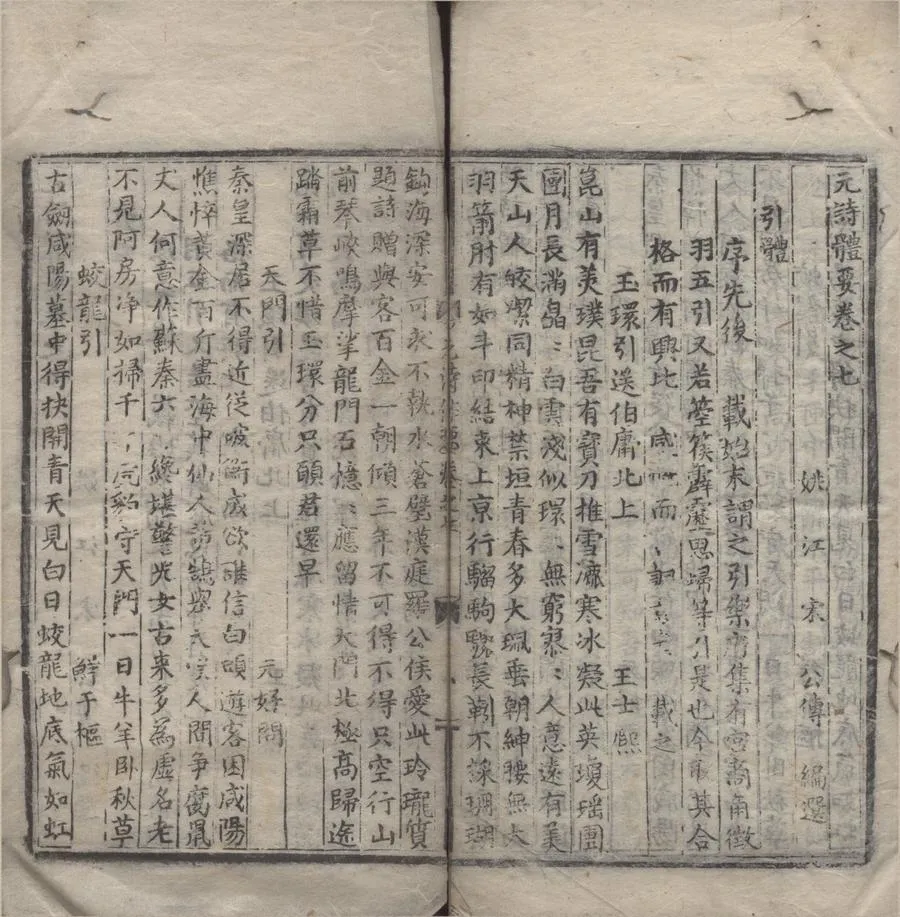 元詩體要卷之七
姚江宋公傳編選
引體
序先後載始末謂之引樂府集有宮商角徵
羽五引又若箜篌霹靂思歸等引是也今取其合
格而有興比 而 載之
玉環引送伯庸北上 王士熙
崑山有美璞昆吾有寶刀推雪漉寒冰凝此英瓊瑶團
團月長滿皛ミ白雲淺似環ミ無窮寥ミ人意遠有美
天山人皎潔同精神禁垣青春多大珮垂朝紳腰無大
羽箭肘有如斗印結束上京行騮駒騕長靷不採珊瑚
鉤海深安可求不執水蒼璧漢庭羅公侯愛此玲瓏質
題詩贈與客百金一朝傾三年不可得不得只空行山
前琴峽鳴摩挲龍門石憶ミ應留情天門北極高歸途
踏霜草不惜玉環分只願君還早
天門引 元好問
秦皇深居不得近從破衡成欲誰信白頭遊客困咸陽
憔悴黃金百斤盡海中仙人 鵠 人間爭腐鼠
丈人何意作蘇秦六 堪擎 女古來多為虛名老
不見阿房净如掃千 豹守天門一日牛羊臥秋草
蛟龍引 鮮于樞
古劍咸陽墓中得抉開青天見白日蛟龍地底氣如虹
元詩體要卷之七
八